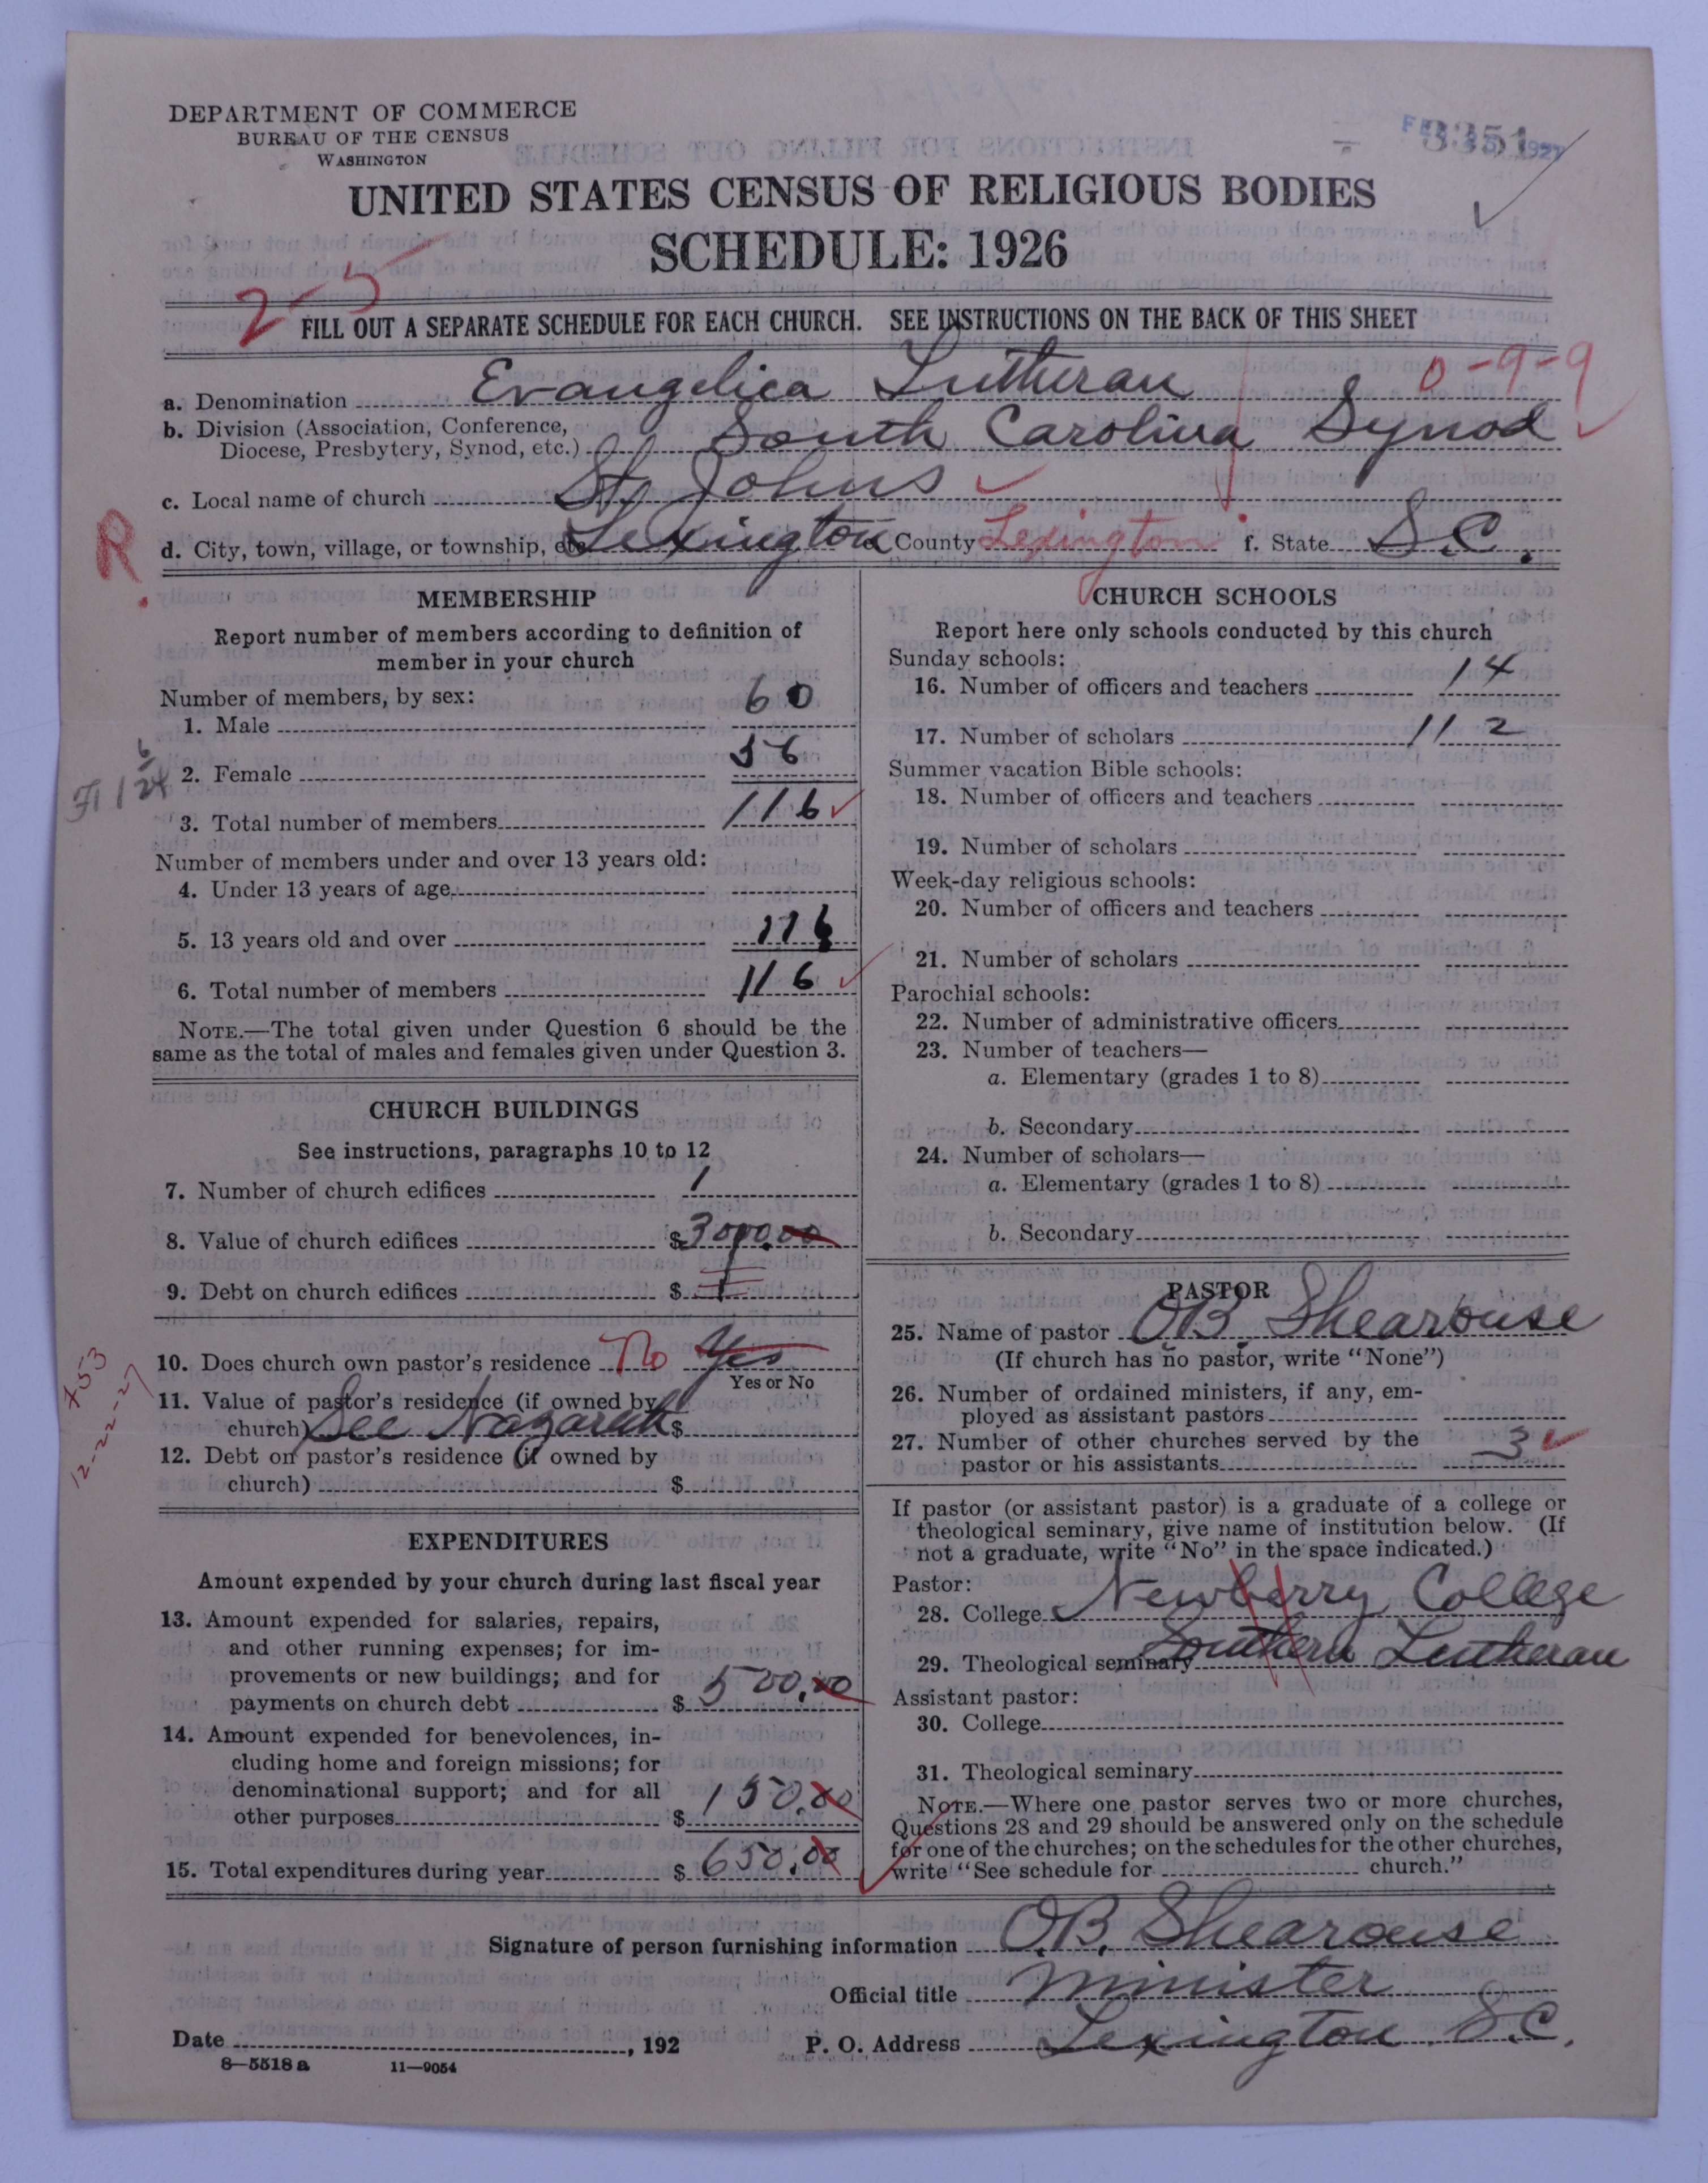 DEPARTMENT OF COMMERCE
BUREAU OF THE CENSUS
WASHINGTON
3351
UNITED STATES CENSUS OF RELIGIOUS BODIES
SCHEDULE: 1926
2-5
FILL OUT A SEPARATE SCHEDULE FOR EACH CHURCH. SEE INSTRUCTIONS ON THE BACK OF THIS SHEET
0-9-9
a. Denomination Evangelica Lutheran
b. Division (Association, Conference, Diocese, Presbytery, Synod, etc.) South Carolina Synod
c. Local name of church St. Johns
R.
d. City, town, village, or township, etc. Lexington e. County Lexington f. State S.C.
MEMBERSHIP
Report number of members according to definition of
member in your church
Number of members, by sex:
1. Male 60
2. Female 56
3. Total number of members 116
Number of members under and over 13 years old:
4. Under 13 years of age
5. 13 years old and over 116
6. Total number of members 116
NOTE.—The total given under Question 6 should be the
same as the total of males and females given under Question 3.
CHURCH BUILDINGS
See instructions, paragraphs 10 to 12
7. Number of church edifices 1
8. Value of church edifices $3000.00
9. Debt on church edifices $
10. Does church own pastor's residence No Yes
Yes or No
11. Value of pastor's residence (if owned by
church) See Nazareth $
12. Debt on pastor's residence (if owned by
church) $
453
12-22-27
EXPENDITURES
Amount expended by your church during last fiscal year
13. Amount expended for salaries, repairs,
and other running expenses; for im-
provements or new buildings; and for
payments on church debt $ 500.00
14. Amount expended for benevolences, in-
cluding home and foreign missions; for
denominational support; and for all
other purposes $ 150.00
15. Total expenditures during year $ 650.00
CHURCH SCHOOLS
Report here only schools conducted by this church
Sunday schools:
16. Number of officers and teachers 14
17. Number of scholars 112
Summer vacation Bible schools:
18. Number of officers and teachers
19. Number of scholars
Week-day religious schools:
20. Number of officers and teachers
21. Number of scholars
Parochial schools:
22. Number of administrative officers
23. Number of teachers—
a. Elementary (grades 1 to 8)
b. Secondary
24. Number of scholars—
a. Elementary (grades 1 to 8)
b. Secondary
PASTOR
25. Name of pastor O.B. Shearouse
(If church has no pastor, write "None")
26. Number of ordained ministers, if any, em-
ployed as assistant pastors
27. Number of other churches served by the
pastor or his assistants 3
If pastor (or assistant pastor) is a graduate of a college or
theological seminary, give name of institution below. (If
not a graduate, write "No" in the space indicated.)
Pastor:
28. College Newberry College
29. Theological seminary Southern Lutheran
Assistant pastor:
30. College
31. Theological seminary
NOTE.—Where one pastor serves two or more churches,
Questions 28 and 29 should be answered only on the schedule
for one of the churches; on the schedules for the other churches,
write "See schedule for church."
Signature of person furnishing information O.B. Shearouse
Official title Minister
Date , 192 P. O. Address Lexington S.C.
8—5518 a 11—9054